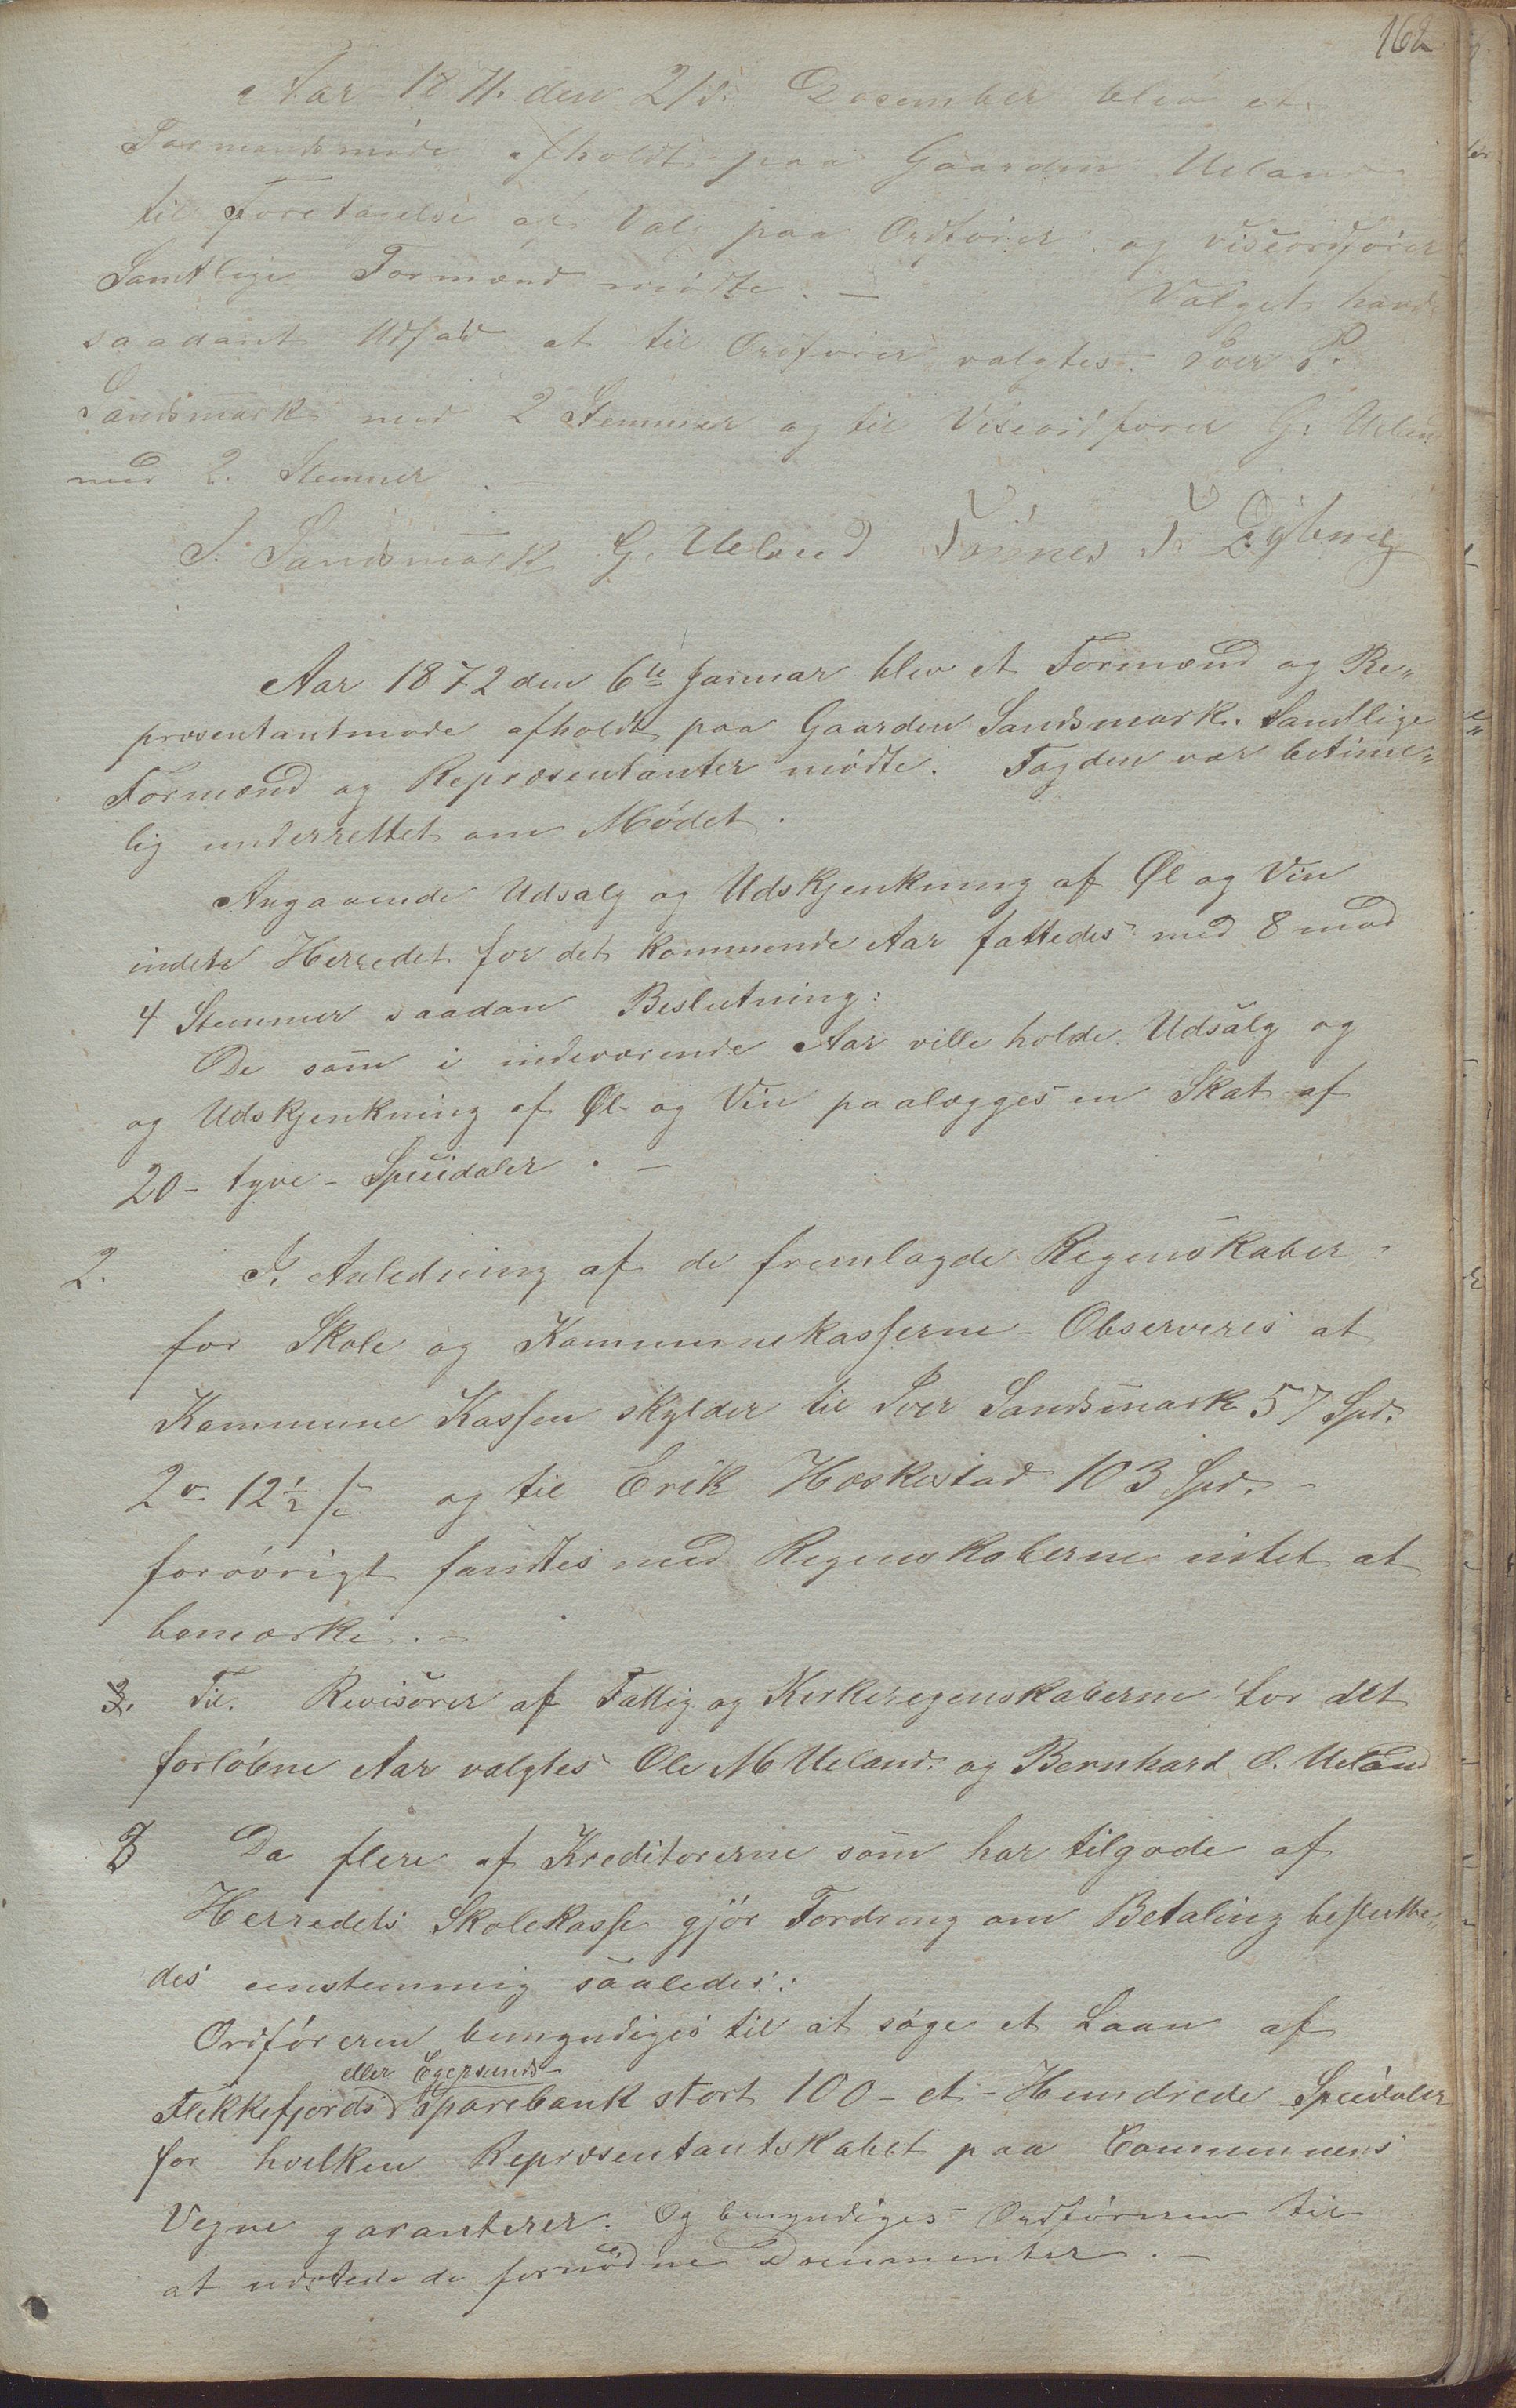 162
Aar 1871. den 21d. December blev et
Formandsmøde afholdt paa Gaarden Ueland
til Foretagelse af Valg paa Ordfører og Viseordfører
Samtlige Formænd mødte. — Valget havde
saadant Udfald at til Ordfører valgtes Iver P.
Sandsmark med 2 Stemmer og til Viseordfører G. Ueland
med 2. Stemmer.
I. Sandsmark G. Ueland Tønnes T. Dybing
Aar 1872 den 6te Januar blev et Formænd og Re„
præsentantmøde afholdt paa Gaarden Sandsmark. Samtlige
Formænd og Repræsentanter mødte. Fogden var betime„
lig underrettet om Mødet.
Angaaende Udsalg og Udskjenkning af Øl og Vin
indete Herredet for det kommende Aar fattedes med 8 mod
4 Stemmer saadan Beslutning:
De som i indeværende Aar ville holde Udsalg og
og Udskjenkning af Øl og Vin paalægges en Skat af
20 - tyve - Speidaler. —
2. I. Anledning af de fremlagde Regenskaber
for Skole og Kommunekasserne - Observeres at
Kommune Kassen skylder til Iver Sandsmark 57 Spd.
2 v 12½ s og til Erik Hæskestad 103 Spd. -
forøvrigt fandtes med Regenskaberne intet at
bemærke. —
3. Til Revisorer af Fattig og Kirkeregenskaberne for det
forløbne Aar valgtes Ole M Ueland og Bernhard O. Ueland
Da flere af Kreditorerne som har tilgode af
Herredets Skolekasse gjør Fordring om Betaling beslutte„
des enstemmig saaledes:
Ordføreren bemyndiges til at søge et Laan af
eller Egersunds
Flekkefjords Sparebank stort 100 - et - Hundrede Speidaler
for hvilken Repræsentantskabet paa Communens
Vegne garanterer. Og bemyndiges Ordføreren til
at udstede de fornødne Documenter. —